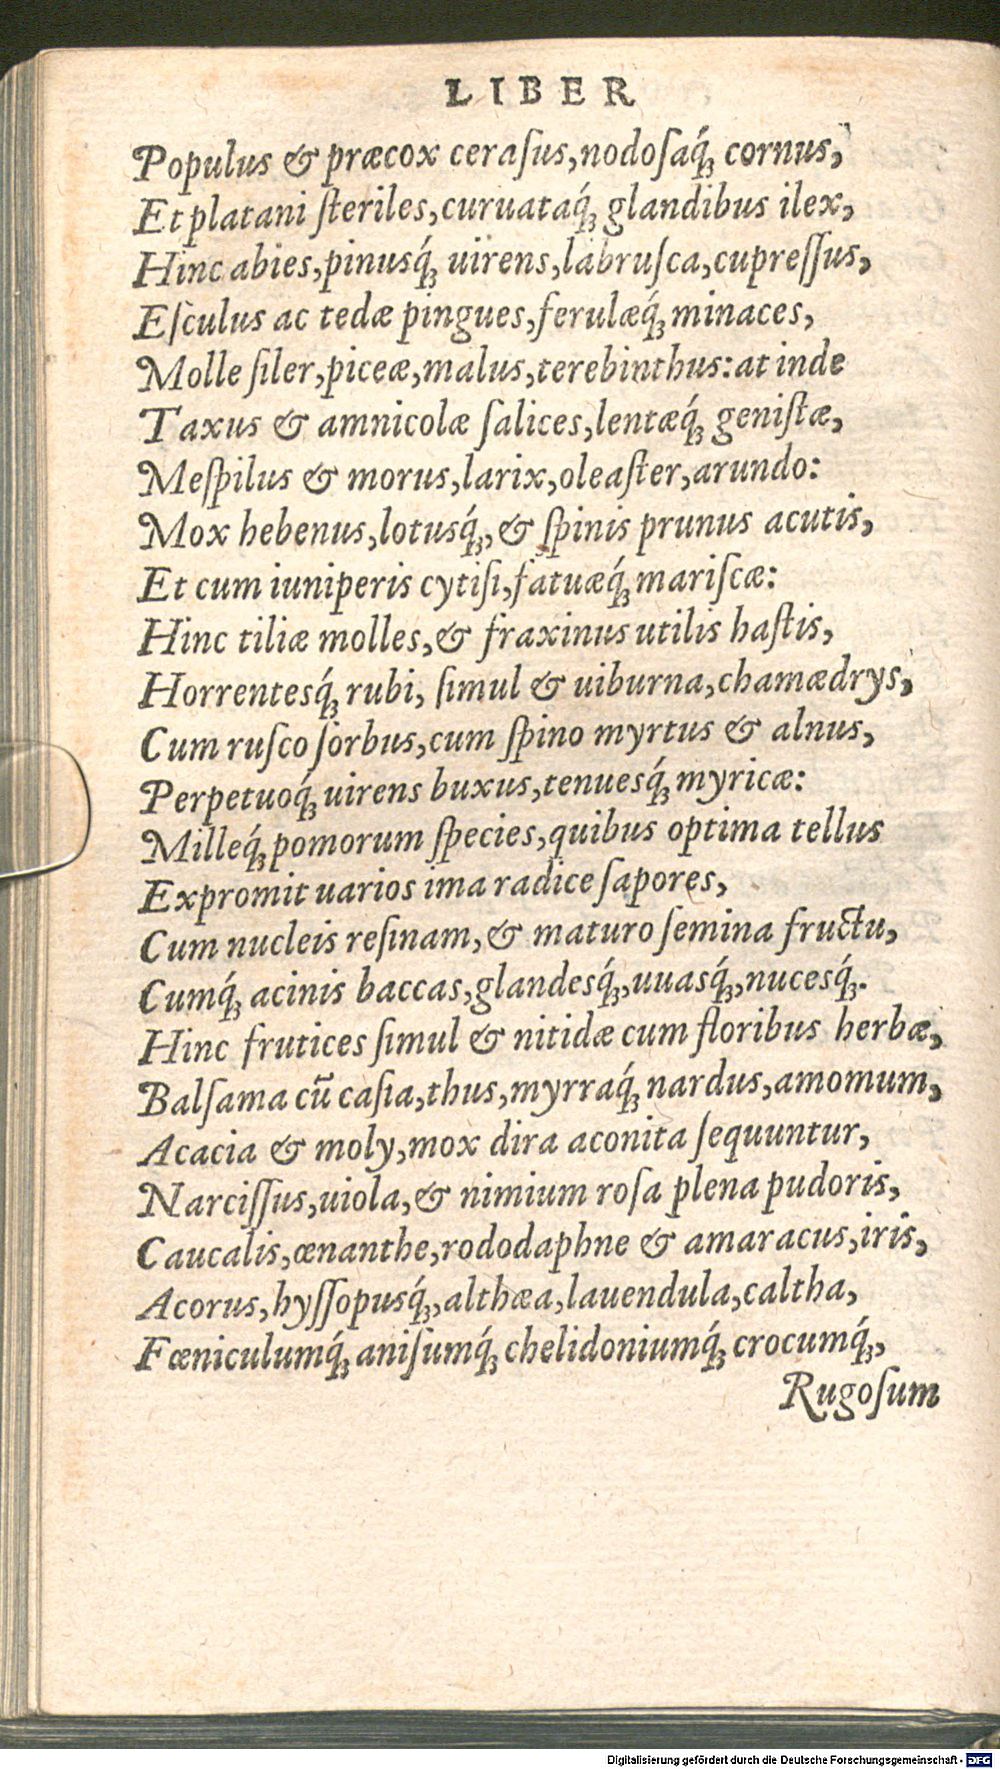 LIBER
Populus & præcox ceraſus, nodoſaq́ꝫ cornus,
Et platani ſteriles, curuataq́ꝫ glandibus ilex,
Hinc abies, pinusq́ꝫ uirens, labruſca, cupreſſus,
Eſculus ac tedæ pingues, ferulæq́ꝫ minaces,
Molle ſiler, piceæ, malus, terebinthus: at inde
Taxus & amnicolæ ſalices, lentæq́ꝫ geniſtæ,
Meſpilus & morus, larix, oleaſter, arundo:
Mox hebenus, lotusq́ꝫ, & ſpinis prunus acutis,
Et cum iuniperis cytiſi, fatuæq́ꝫ mariſcæ:
Hinc tiliæ molles, & fraxinus utilis haſtis,
Horrentesq́ꝫ rubi, ſimul & uiburna, chamædrys,
Cum ruſco ſorbus, cum ſpino myrtus & alnus,
Perpetuoq́ꝫ uirens buxus, tenuesq́ꝫ myricæ:
Milleq́ꝫ pomorum ſpecies, quibus optima tellus
Expromit uarios ima radice ſapores,
Cum nucleis reſinam, & maturo ſemina fructu,
Cumq́ꝫ acinis baccas, glandesq́ꝫ, uuasq́ꝫ, nucesq́ꝫ.
Hinc frutices ſimul & nitidæ cum floribus herbæ,
Balſama cū caſia, thus, myrraq́ꝫ nardus, amomum,
Acacia & moly, mox dira aconita ſequuntur,
Narciſſus, uiola, & nimium roſa plena pudoris,
Caucalis, œnanthe, rododaphne & amaracus, iris,
Acorus, hyſſopusq́ꝫ, althæa, lauendula, caltha,
Fœniculumq́ꝫ aniſumq́ꝫ chelidoniumq́ꝫ crocumq́ꝫ,
Rugoſum
Digitalisierung gefördert durch die Deutsche Forschungsgemeinschaft - DFG